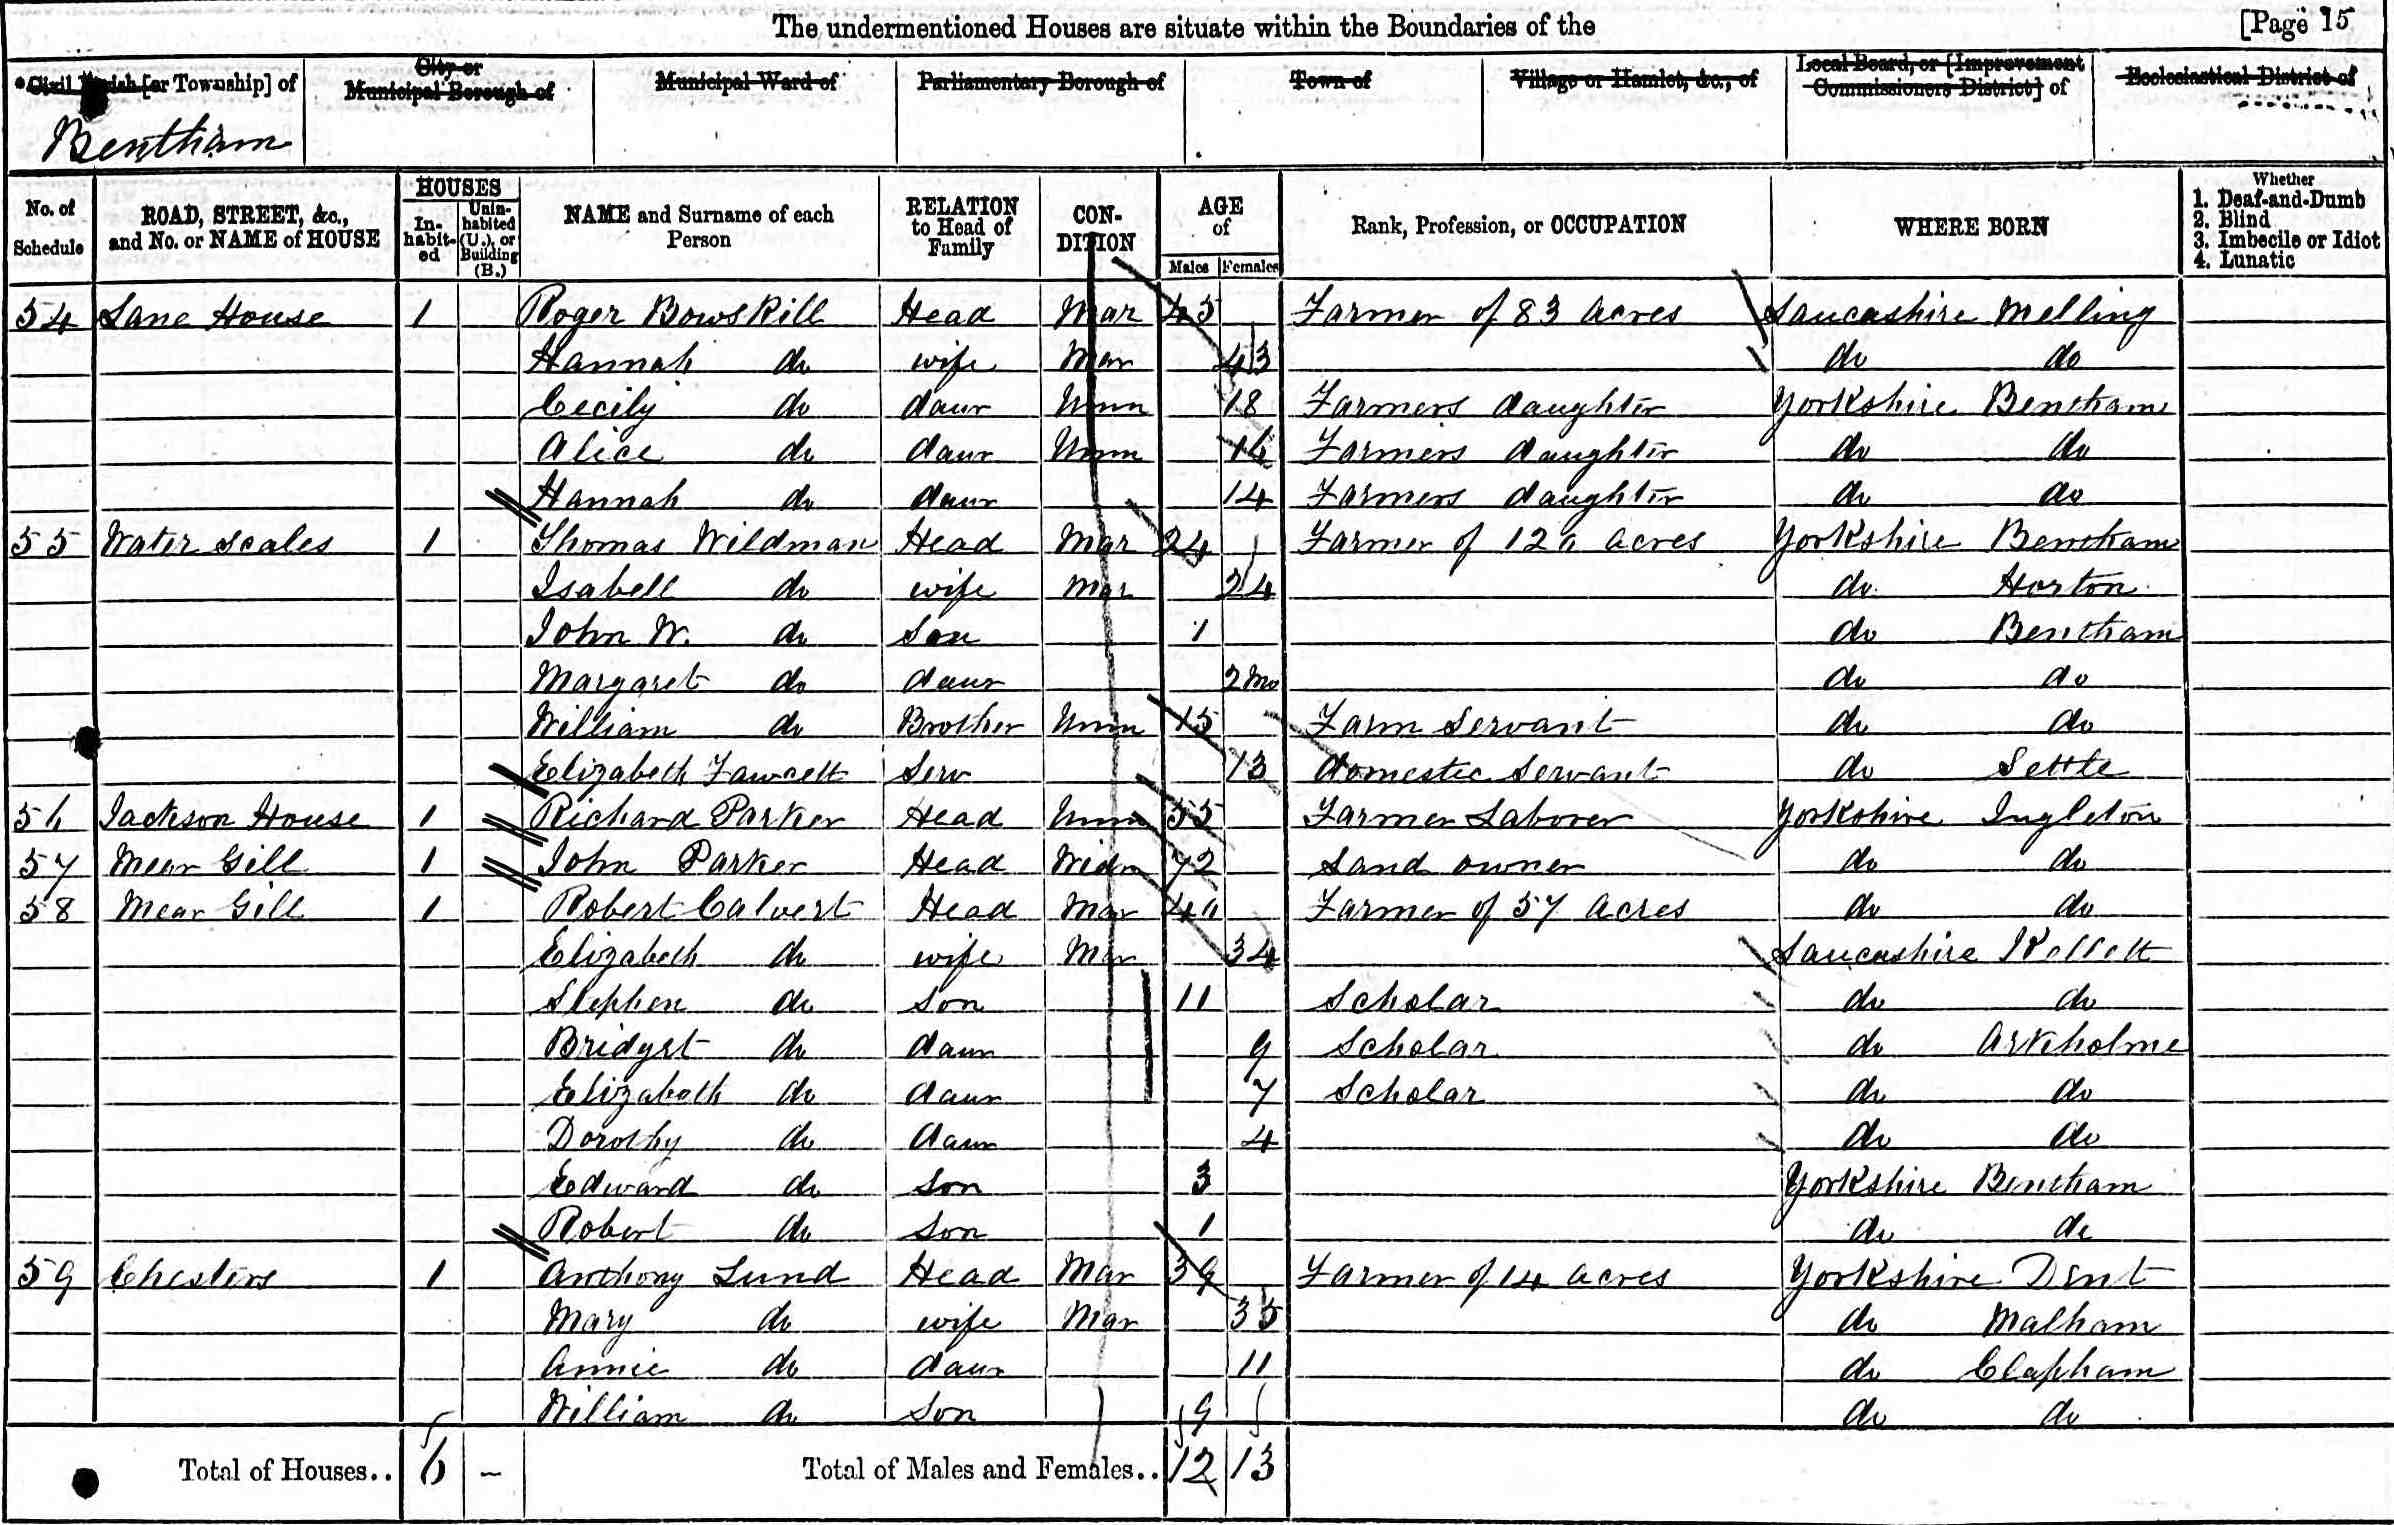 The undermentioned Houses are situate within the Boundaries of the [Page 15
Civil Parish [or Township] of City or Municipal Borough of Municipal Ward of Parliamentary Borough of Town of Village or Hamlet, &c., of Local Board, or [Improvement Commissioners District] of Ecclesiastical District of
Bentham
No. of Schedule ROAD, STREET, &c., and No. or NAME of HOUSE HOUSES In-habit-ed Unin-habited (U.), or Building (B.) NAME and Surname of each Person RELATION to Head of Family CON-DITION AGE of Males Females Rank, Profession, or OCCUPATION WHERE BORN Whether 1. Deaf-and-Dumb 2. Blind 3. Imbecile or Idiot 4. Lunatic
54 Lane House 1 Roger Bowskill Head Mar 45 Farmer of 83 acres Lancashire Melling
Hannah do wife Mar 43 do do
Cecily do daur Unm 18 Farmers daughter Yorkshire Bentham
Alice do daur Unm 16 Farmers daughter do do
Hannah do daur 14 Farmers daughter do do
55 Water scales 1 Thomas Wildman Head Mar 24 Farmer of 120 acres Yorkshire Bentham
Isabell do wife Mar 24 do Horton
John W. do Son 1 do Bentham
Margaret do daur 2 Mo do do
William do Brother Unm 15 Farm Servant do do
Elizabeth Fawcett Serv 13 domestic Servant do Settle
56 Jackson House 1 Richard Parker Head Unm 55 Farmer Laborer Yorkshire Ingleton
57 Mear Gill 1 John Parker Head Widr 72 Land owner do do
58 Mear Gill 1 Robert Calvert Head Mar 40 Farmer of 57 acres do do
Elizabeth do wife Mar 34 Lancashire Kellett
Stephen do son 11 Scholar do do
Bridget do daur 9 Scholar do Arkholme
Elizabeth do daur 7 Scholar do do
Dorothy do daur 4 do do
Edward do Son 3 Yorkshire Bentham
Robert do Son 1 do do
59 Chesters 1 Anthony Lund Head Mar 39 Farmer of 14 acres Yorkshire Dent
Mary do wife Mar 35 do Malham
Annie do daur 11 do Clapham
William do Son 9 do do
Total of Houses.. 6 – Total of Males and Females.. 12 13